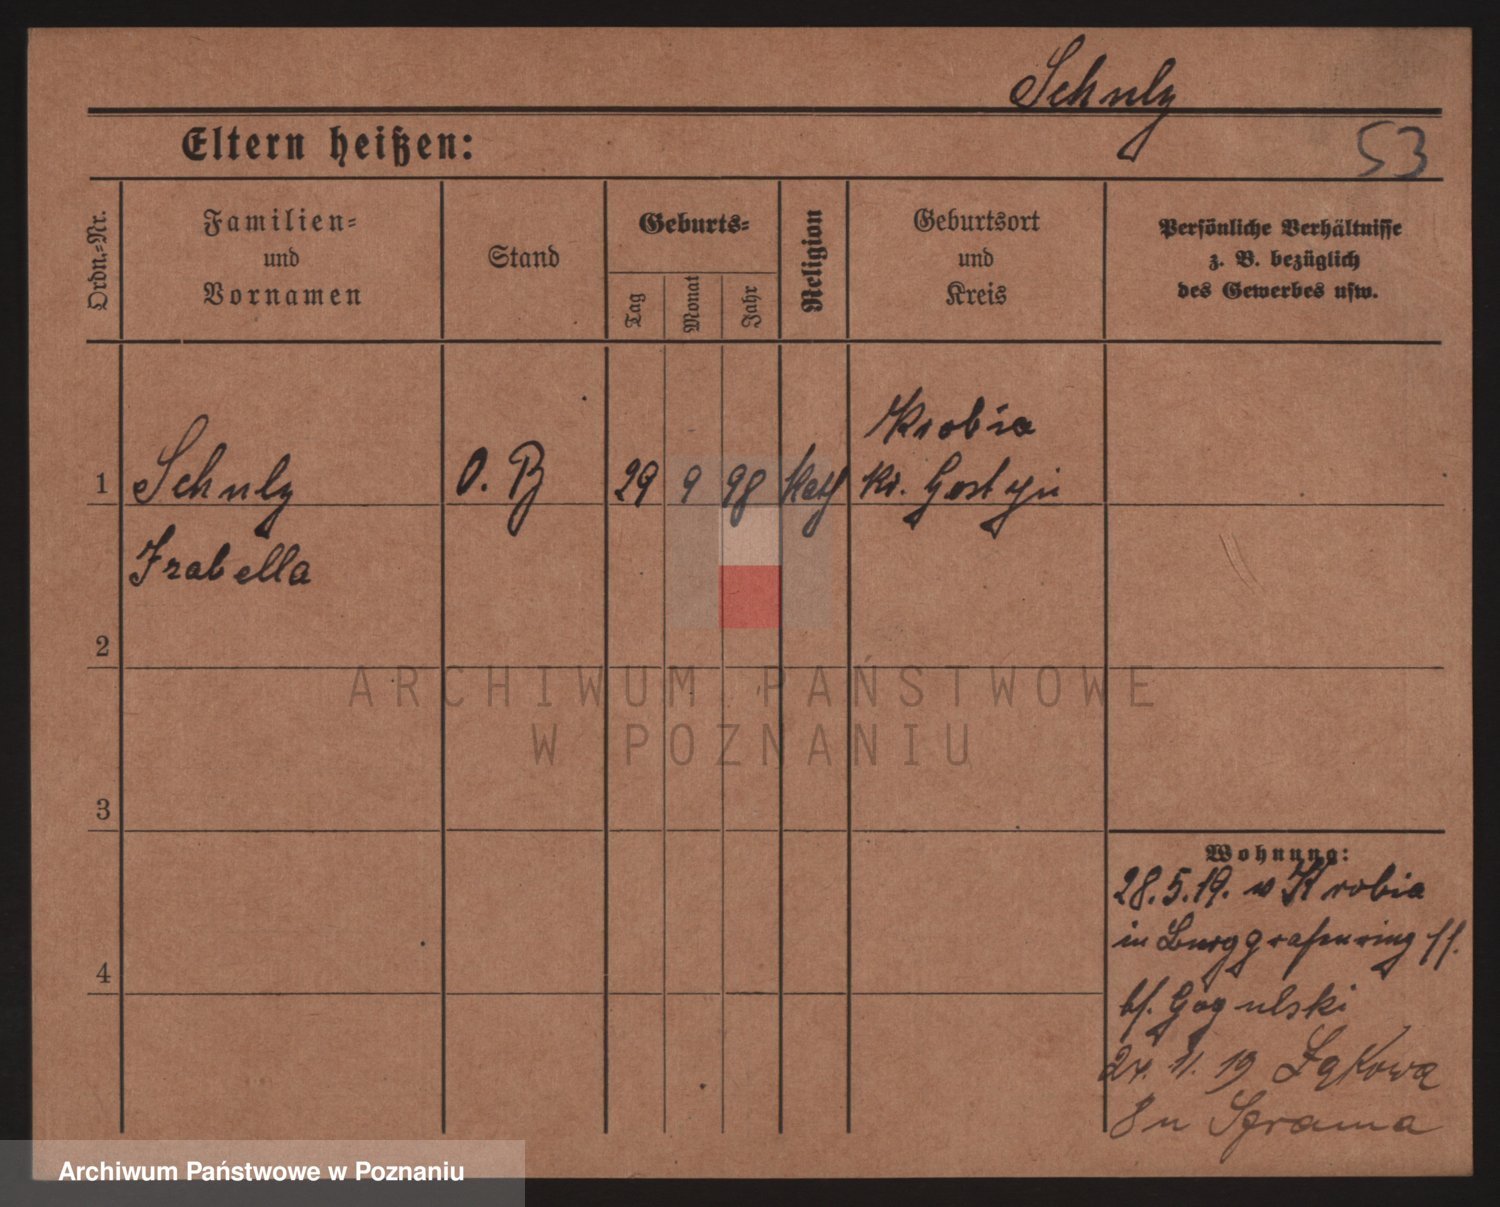 Schulz
53
Eltern heißen:
Ordn.=Nr.
Familien=
und
Vornamen
Stand
Geburts=
Tag
Monat
Jahr
Religion
Geburtsort
und
Kreis
Persönliche Verhältnisse
z. B. bezüglich
des Gewerbes usw.
Krobia
1 Schulz O. B 29 9 98 Kath Kr. Gostyń
Izabella
2
3
4
Wohnung:
28.5.19. w Krobia
in Burggrafenring
bf. Gogulski
11. 19 Łąkowa
8 u
ARCHIWUM PAŃSTWOWE
W POZNANIU
Archiwum Państwowe w Poznaniu